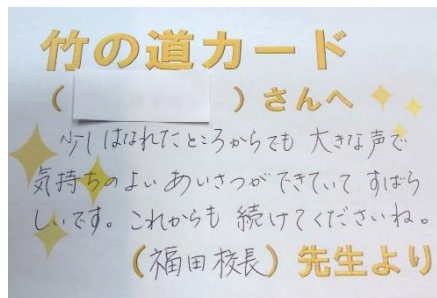 竹の道カード
( ) さんへ
少しはなれたところからでも 大きな声で
気持ちのよい あいさつができていて すばら
しいです。これからも 続けてくださいね。
(福田校長) 先生より